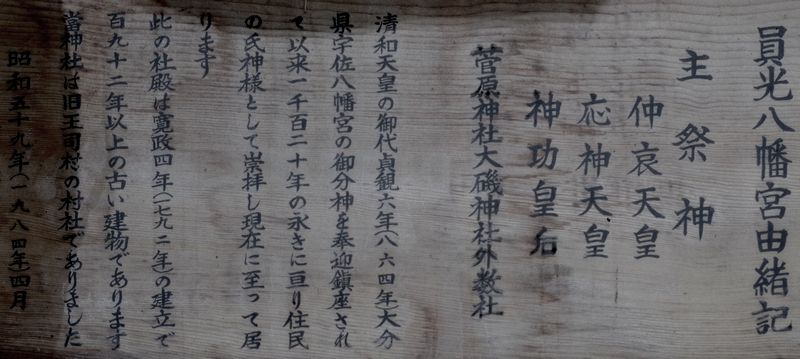 員光八幡宮由緒記
主祭神
仲哀天皇
応神天皇
神功皇后
菅原神社大磯神社外数社
清和天皇の御代貞観六年(八六四年大分
県宇佐八幡宮の御分神を奉迎鎮座され
て以来一千百二十年の永きに亘り住民
の氏神様として崇拝し現在に至って居
ります
此の社殿は寛政四年(一七九二年)の建立で
百九十二年以上の古い建物であります
當神社は旧王司村の村社でありました
昭和五十九年(一九八四年)四月